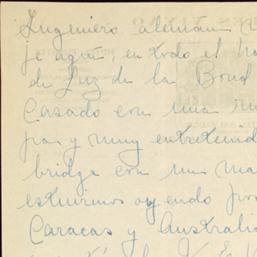 Ingeniero alemán
je aquí; en todo el
de Luz de la Bond
Casado con una
pas y muy entretenid
bridge con un
estuvimos oyendo
Caracas y Australia